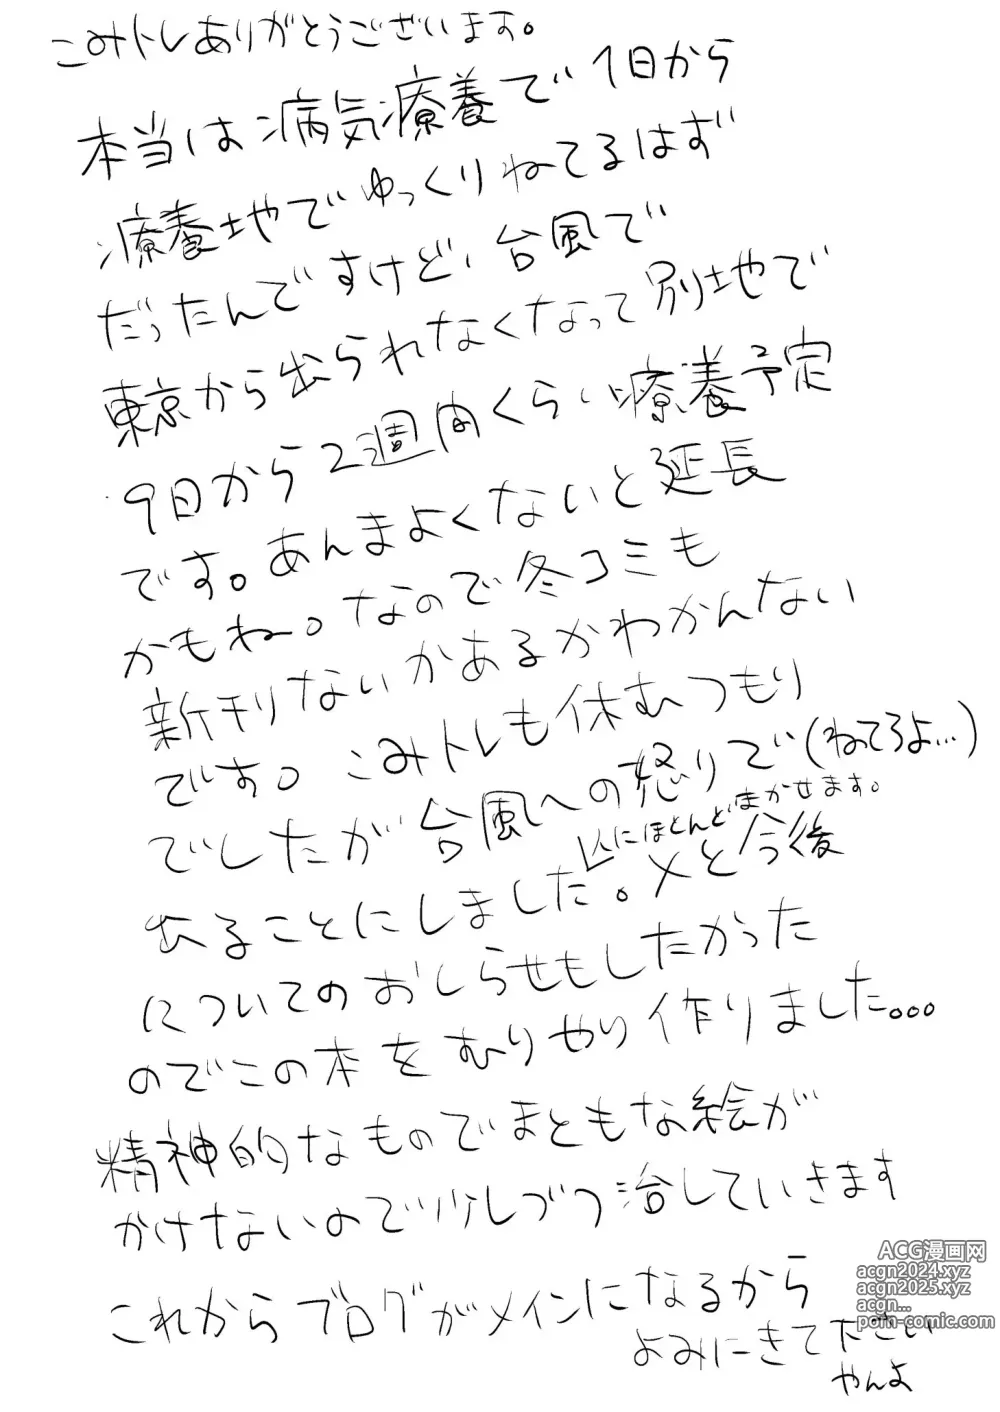 こみトレありがとうございます。
本当は病気療養で1日から
療養地でゆっくりねてるはず
だったんですけど、台風で
東京から出られなくなって別地で
9日から2週間くらい療養予定
です。あんまよくないと延長
かもね。なので冬コミも
新刊ないかあるかわかんない
です。こみトレも休むつもり
でしたが台風への怒りで(ねてろよ…)
出ることにしました。メと今後
人にほとんどまかせます。
についてのおしらせもしたかった
のでこの本をむりやり作りました…
精神的なものでまともな絵が
かけないので少しづつ治していきます
これからブログがメインになるから
よみにきて下さい
やんよ
ACG漫画网
acgn2024.xyz
acgn2025.xyz
acgn...
porn-comic.com